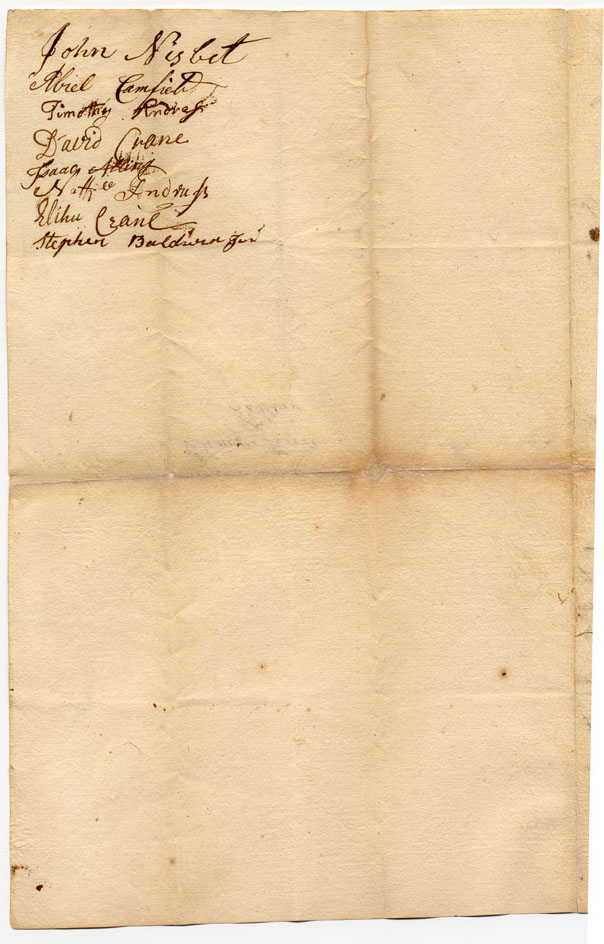 John Nisbet
Abiel Camfield
Timothy Andruss
David Crane
Isaac Alling
Nath.ll Andruss
Elihu Crane
Stephen Baldwin Jur